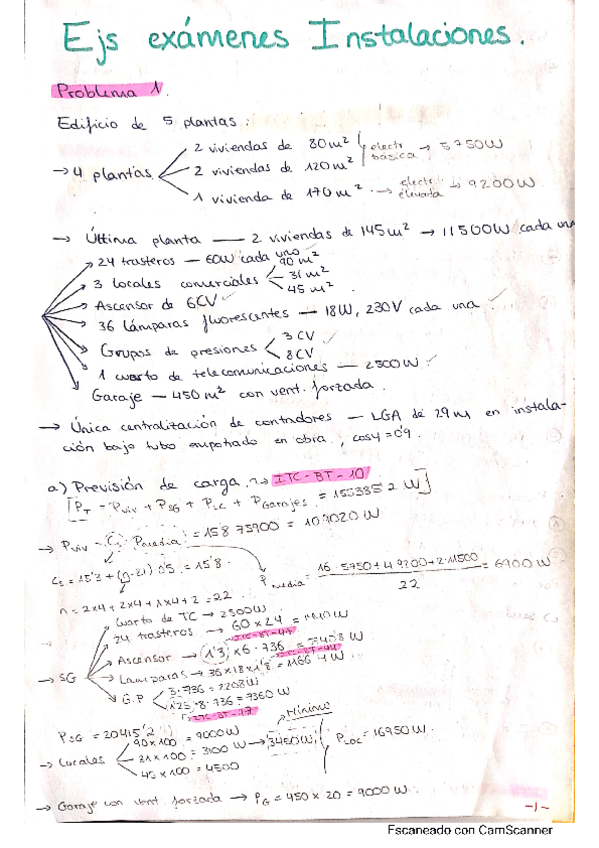 Ejs exámenes Instalaciones.
Problema 1.
Edificio de 5 plantas:
→ 4 plantas
2 viviendas de 80m²
2 viviendas de 120m²
electr básica → 5750W
1 vivienda de 170m² → electr elevada → 9200W
→ Última planta — 2 viviendas de 145m² → 11500W cada una
24 trasteros — 60W cada uno
3 locales comerciales
90 m²
31 m²
45 m²
Ascensor de 6CV
36 lámparas fluorescentes — 18W, 230V cada una
Grupos de presiones
3 CV
8CV
1 cuarto de telecomunicaciones — 2500W
Garaje — 450m² con vent. forzada.
→ Única centralización de contadores — LGA de 29m en instala-
ción bajo tubo empotrado en obra, cosφ = 0'9.
a) Previsión de carga. → ITC-BT-10
[P_T = P_viv + P_SG + P_LC + P_Garajes = 155385'2 W]
→ P_viv = C_s · P_media = 15'8 · 6900 = 109020 W
C_s = 15'3 + (n-21) 0'5 = 15'8.
P_media = (16·5750 + 4·9200 + 2·11500) / 22 = 6900 W
n = 2x4 + 2x4 + 1x4 + 2 = 22
→ SG
Cuarto de TC → 2500W
24 trasteros → 60 x 24 = 1440W
Ascensor → (1'3) x 6·736
Lamparas → 36x18x1'8 = 1166'4 W
G.P
3·736 = 2208W
1'25·8·736 = 7360 W
P_SG = 20415'2
→ Locales
90x100 = 9000W
31x100 = 3100 W → 3450W
45 x 100 = 4500
Mínimo
P_LOC = 16950W
→ Garaje con vent. forzada → P_G = 450 x 20 = 9000W
-1-
Escaneado con CamScanner